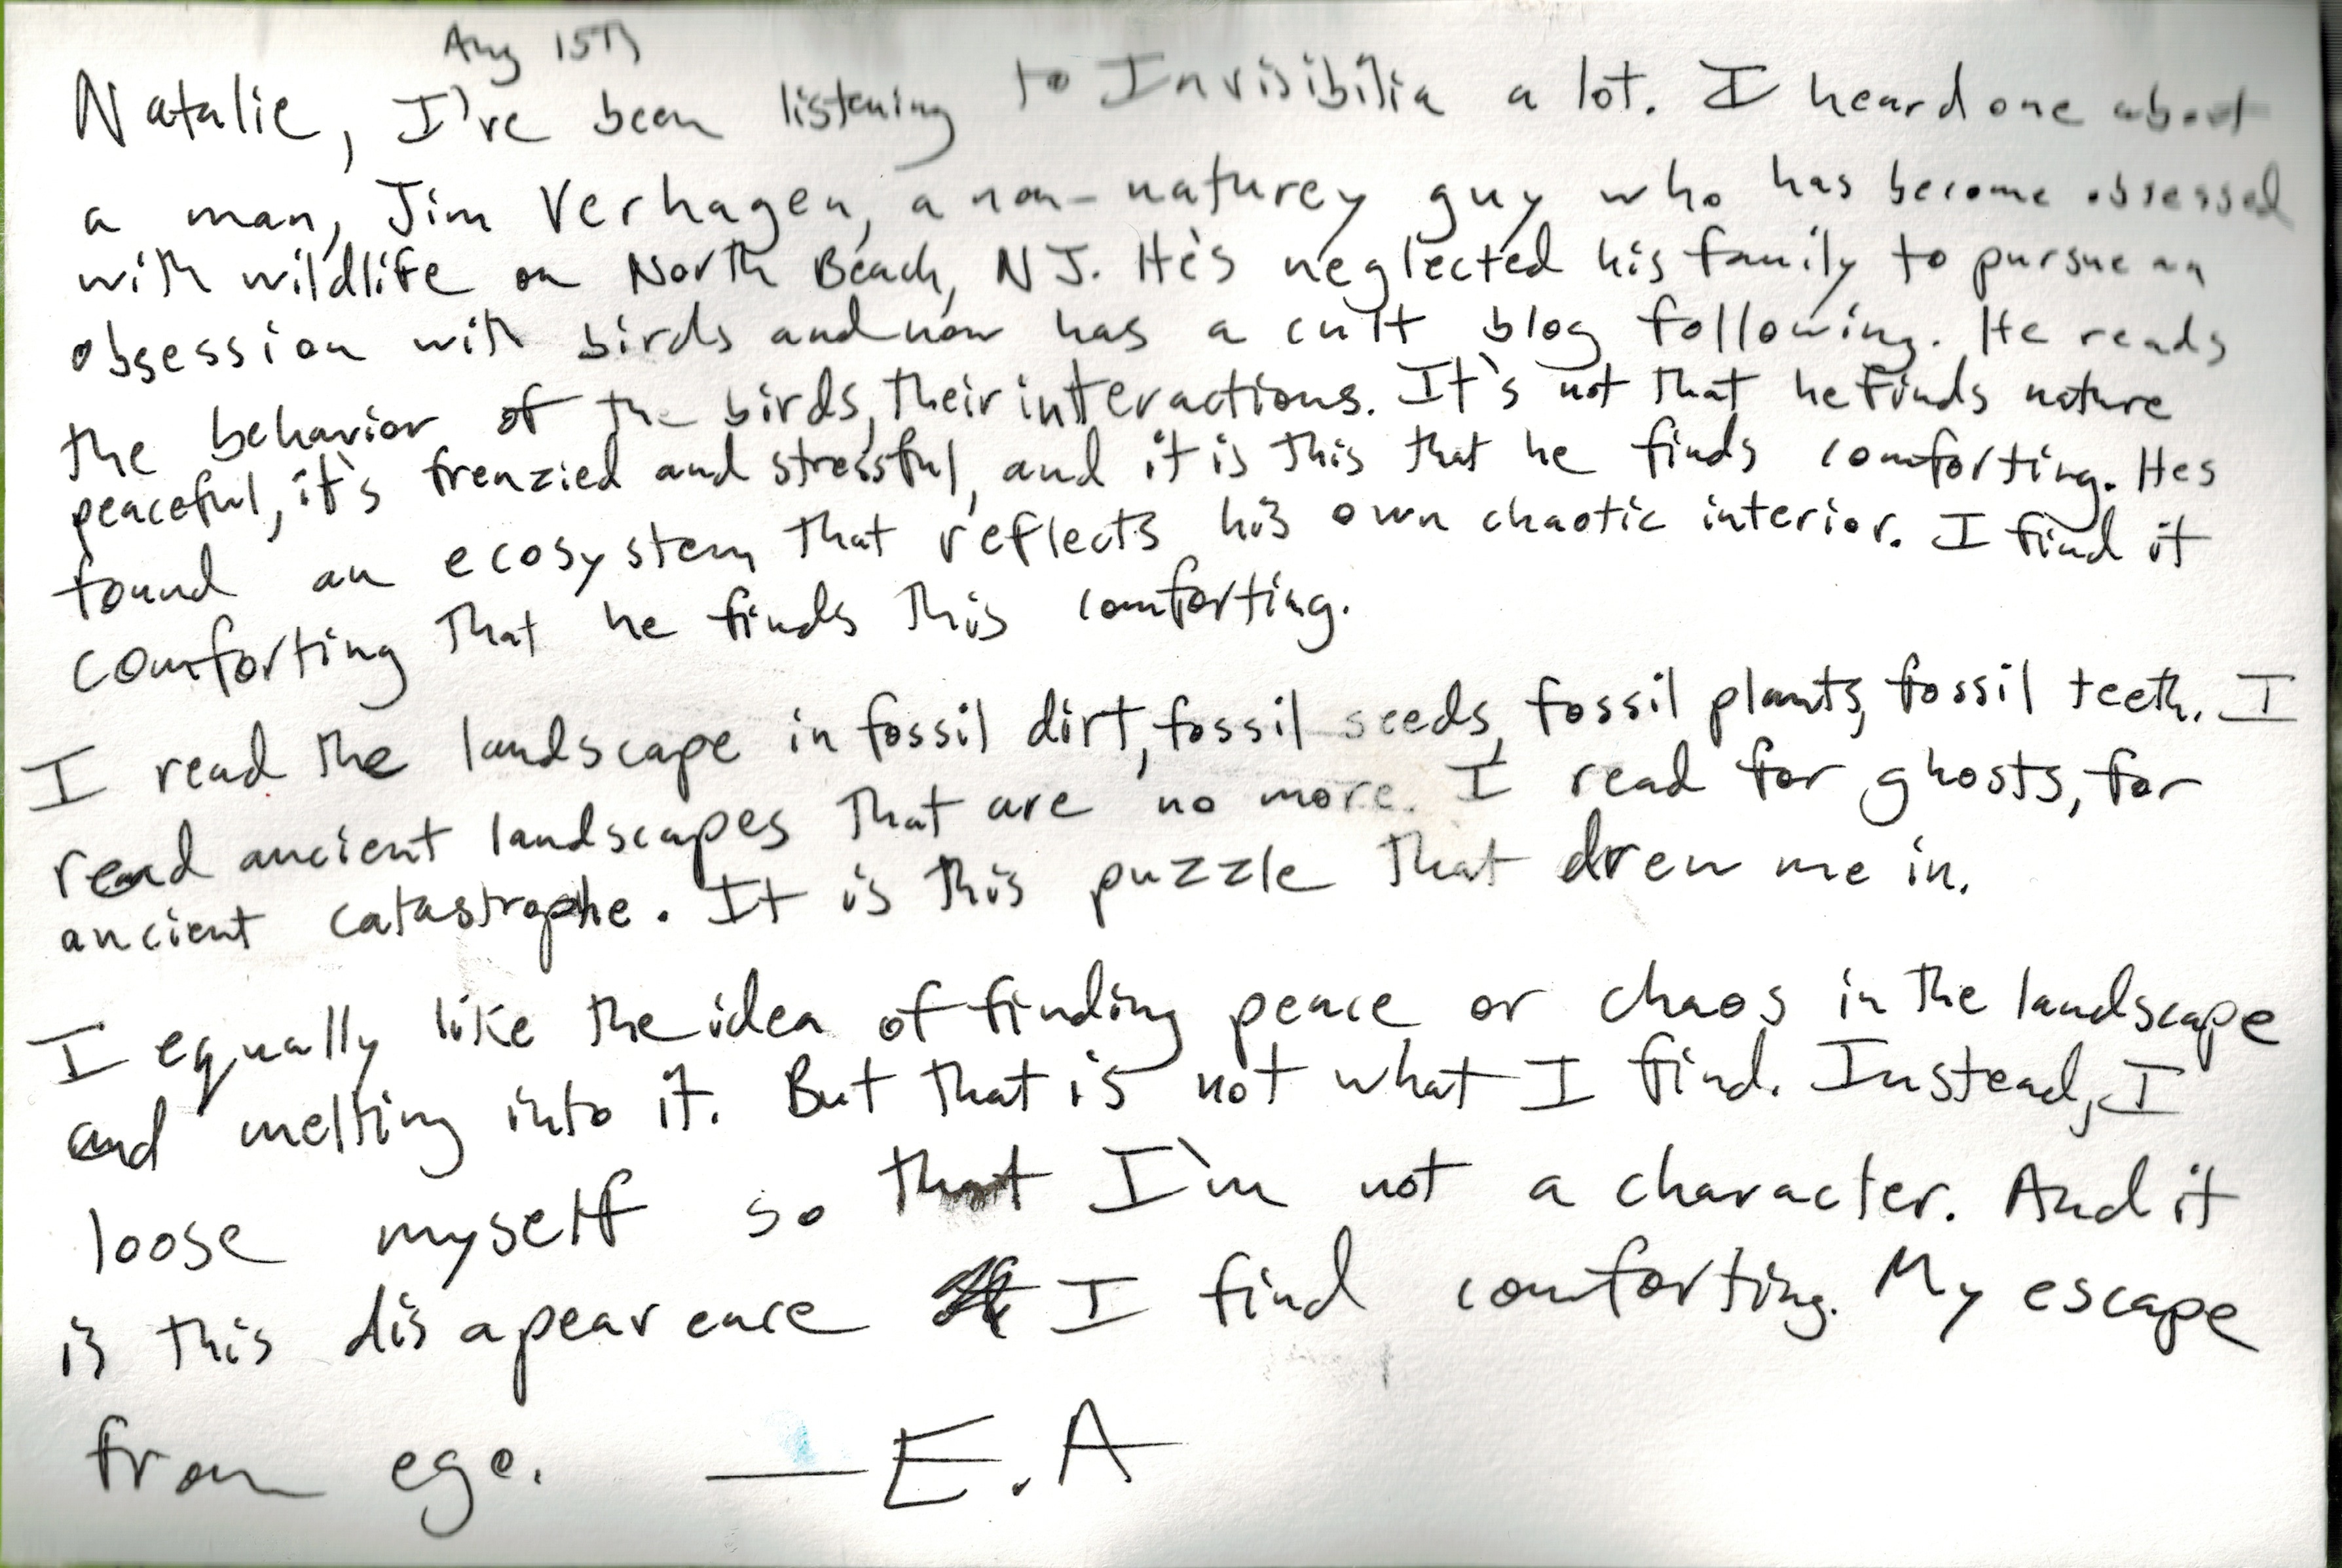 Aug 15th
Natalie, I've been listening to Invisibilia a lot. I heard one about
a man, Jim Verhagen, a non-naturey guy who has become obsessed
with wildlife on North Beach, NJ. He's neglected his family to pursue an
obsession with birds and now has a cult blog following. He reads
the behavior of the birds, their interactions. It's not that he finds nature
peaceful, it's frenzied and stressful, and it is this that he finds comforting. Hes
found an ecosystem that reflects his own chaotic interior. I find it
comforting that he finds this comforting.
I read the landscape in fossil dirt, fossil seeds, fossil plants, fossil teeth. I
read ancient landscapes that are no more. I read for ghosts, for
ancient catastrophe. It is this puzzle that drew me in.
I equally like the idea of finding peace or chaos in the landscape
and melting into it. But that is not what I find. Instead, I
loose myself so that I'm not a character. And it
is this disapearence I find comforting. My escape
from ego. — E.A